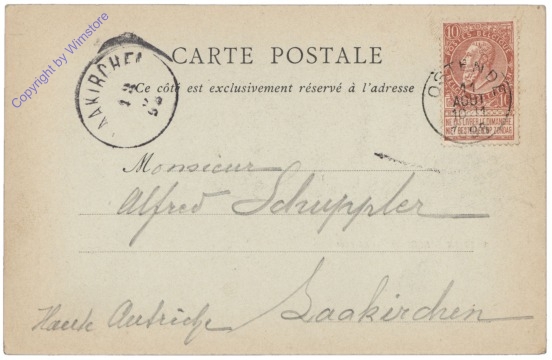 Copyright by Wimstore
CARTE POSTALE
Ce côté est exclusivement réservé à l'adresse
AAKIRCHEN
10
OSTENDE
AOUT
NE PAS LIVRER LE DIMANCHE
NIET BESTELLEN OP ZONDAG
Monsieur
Alfred Schuppler
Laakirchen
Haute Autriche